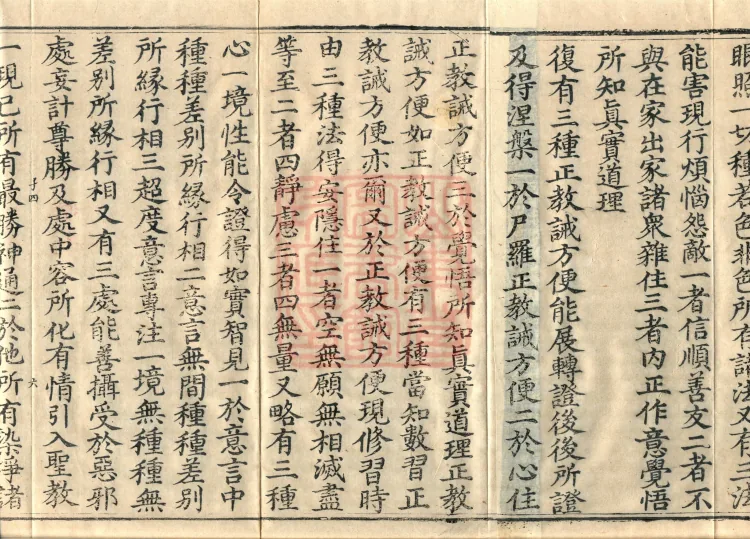 眼照一切種若色非色所有諸法又有三法
能害現行煩惱怨敵一者信順善友二者不
與在家出家諸衆雜住三者內正作意覺悟
所知眞實道理
復有三種正教誡方便能展轉證後後所證
及得涅槃一於尸羅正教誡方便二於心住
正教誡方便三於覺悟所知眞實道理正教
誡方便如正教誡方便有三種當知數習正
教誡方便亦爾又於正教誡方便現修習時
由三種法得安隱住一者空無願無相滅盡
等至二者四靜慮三者四無量又略有三種
心一境性能令證得如實智見一於意言中
種種差別所緣行相二意言無間種種差別
所緣行相三超度意言專注一境無種種無
差別所緣行相又有三處能善攝受於惡邪
處妄計尊勝及處中容所化有情引入聖教
子四
六
一現己所有最勝神通二於他所有染淨諸